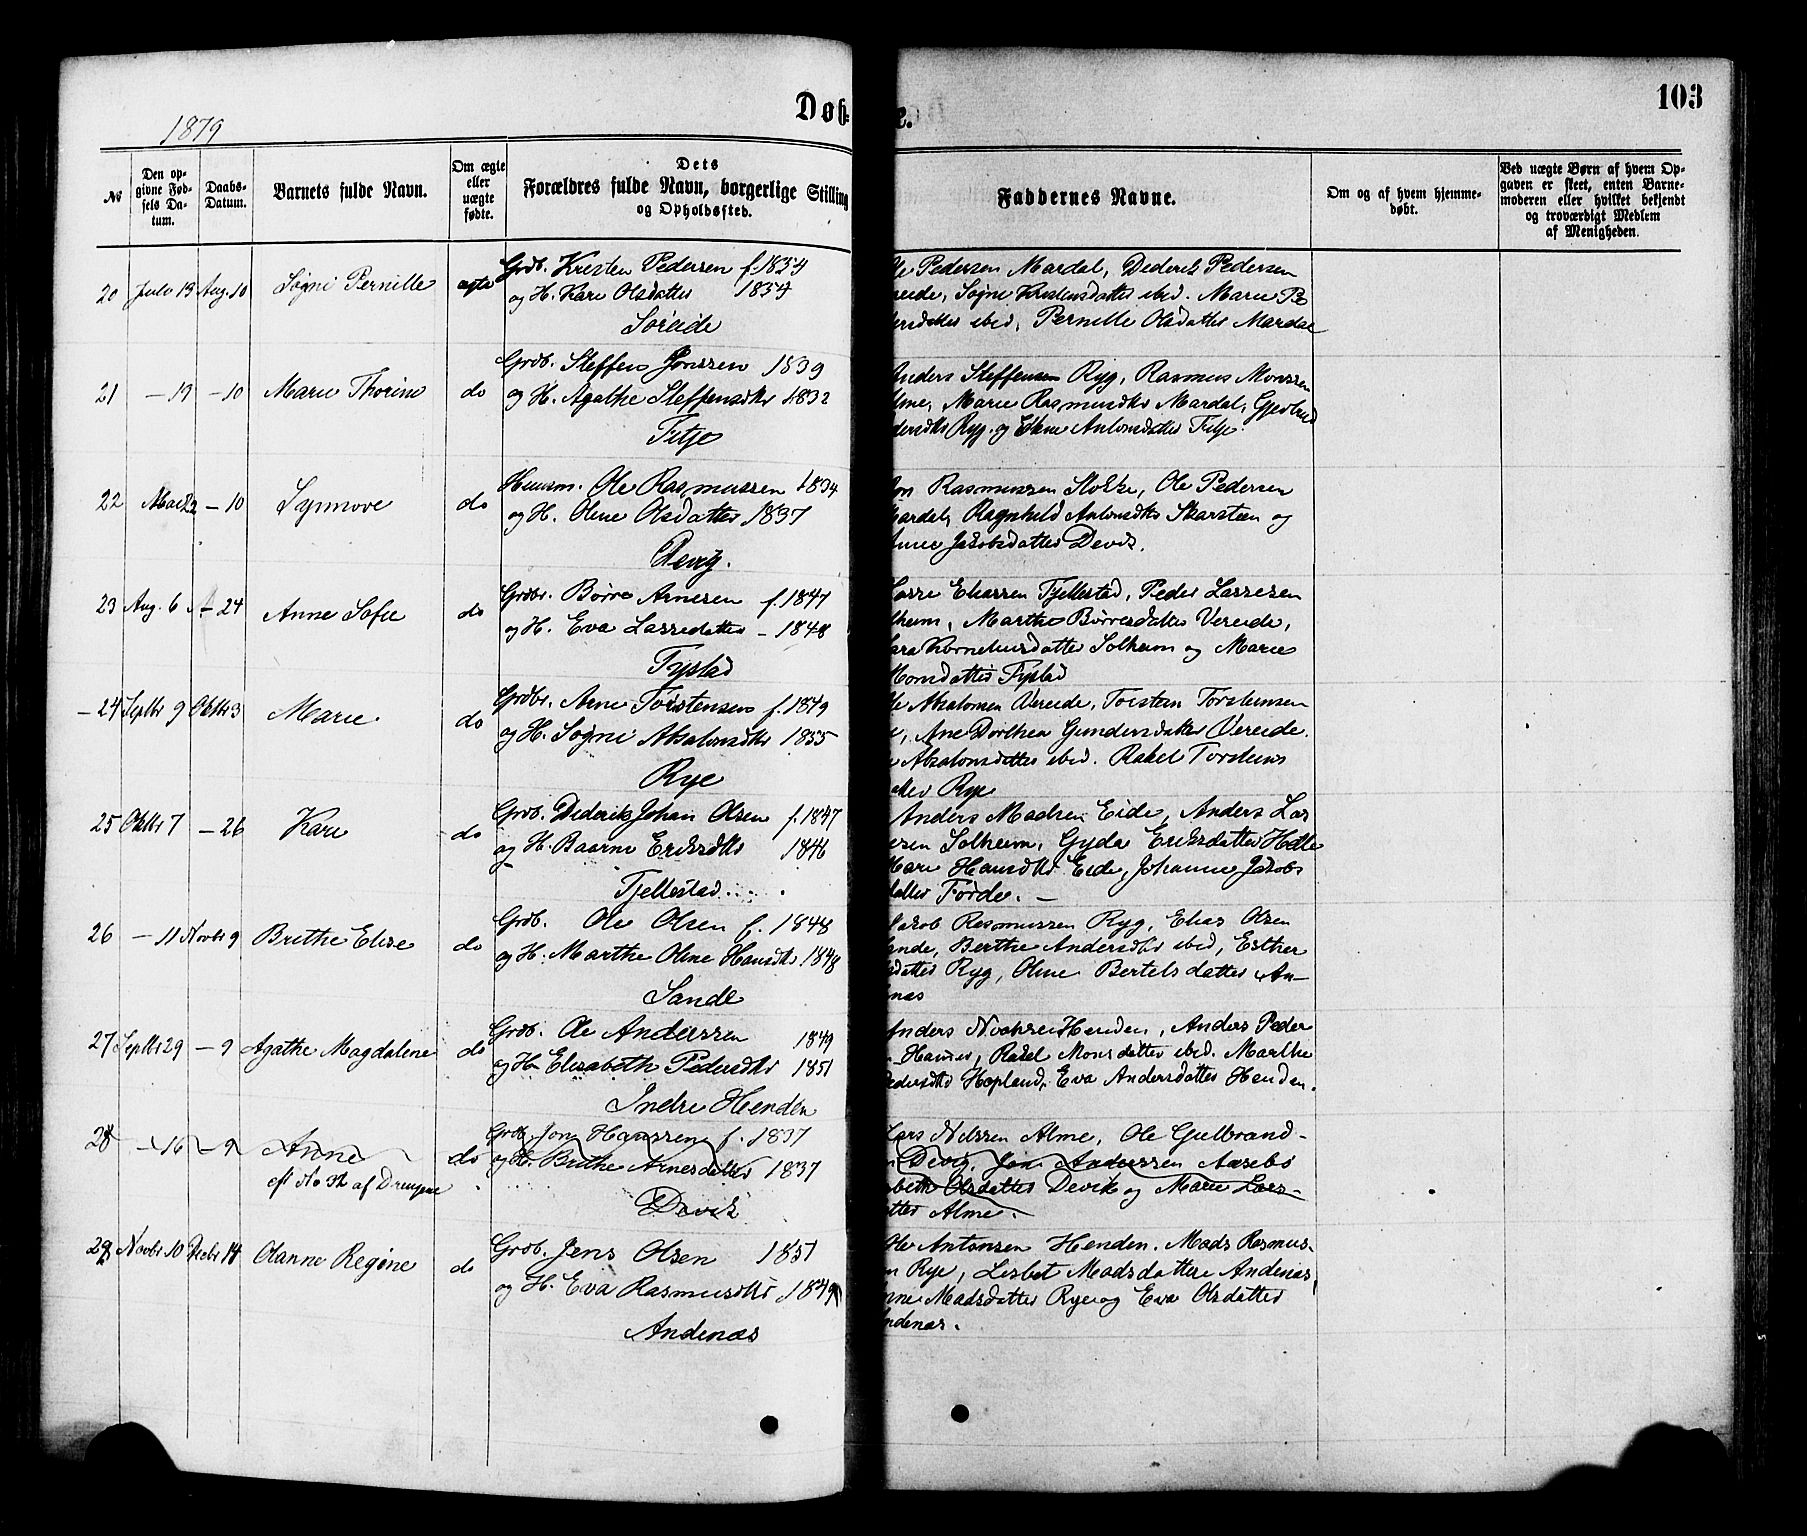 103
Døb-
e.
1879
No
Den op-
givne Fød-
sels Da-
tum.
Daabs-
Datum.
Barnets fulde Navn.
Om ægte
eller
uægte
fødte.
Dets
Forældres fulde Navn, borgerlige Stilling
og Opholdssted.
Faddernes Navne.
Om og af hvem hjemme-
døbt.
Ved uægte Børn af hvem Op-
gaven er skeet, enten Barne-
moderen eller hvilket bekjendt
og troværdigt Medlem
af Menigheden.
20 Juli 13 Aug. 10 Søgni Pernille ægte Grdb. Kresten Pedersen f. 1834
og H. Kari Olsdatter 1834
Søreide
le Pedersen Mardal, Dederik Pedersen
reide, Søgne Kristensdatter ibid. Marie Pe
dersdatter ibid, Pernille Olsdatter Mardal
21 – 19 – 10 Marie Thorine do Grdb. Steffen Jonssen 1839
og H. Agathe Steffensdtr 1832
Fitje
Anders Steffensen Ryg, Rasmus Monssen
Alme, Marie Rasmusdtr Mardal, Gjertrud
dersdtr Ryg og Antonsdatter Fitje.
22 – 10 Synnøve do Huusm. Ole Rasmussen 1834
og H. Oline Olsdatter 1837
Devig.
Jon Rasmussen Stokke, Ole Pedersen
Mardal, Ragnhild Antonsdtr Skarsteen og
Anne Jakobsdatter Devik.
23 Aug. 6 – 24 Anne Sofie do Grdbr. Børre Arnesen f. 1847
og H. Eva Lassedatter – 1848
Fystad
Lasse Eliassen Tjellestad, Peder Lassesen
lheim, Marthe Børresdatter Vereide,
ara Korneliusdatter Solheim og Marie
Monsdatter Fystad
– 24 Septbr 9 Oktbr 3 Marie do Grdbr. Arne Torstensen f. 1849
og H. Søgni Absalonsdtr 1855
Rye
le Absalonsen Vereide, Torsten Torstensen
e, Ane Dorthea Gundersdatter Vereide.
Absalonsdatter ibid. Rakel Torstens
datter Rye
25 Oktbr 7 – 26 Kari do Grdb. Dederik Johan Olsen f. 1847
og H. Baarni Eriksdtr 1846
Tjellestad
Anders Madsen Eide, Anders Las
sesen Solheim, Gyda Eriksdatter Hetle
Mari Hansdtr Eide, Johanne Jakobs
datter Førde. –
26 – 11 Novbr 9 Brithe Elise do Grdb. Ole Olsen f. 1848
og H. Marthe Oline Hansdtr 1848
Sande
Jakob Rasmussen Ryg, Elias Olsen
ande, Berthe Andersdtr ibid, Esther
sdatter Ryg, Oline Bertelsdatter An-
enæs
27 Septbr 29 – 9 Agathe Magdalene do Grdb. Ole Anderssen 1849
og H. Elisabeth Pedersdtr 1851
Indre Henden
Anders Henden, Anders Peder
Hamer, Rakel Monsdatter ibid. Marthe
Pedersdtr Hopland, Eva Andersdatter Henden.
28 – 16 – 9 Anne do Grdb. Jon Hanssen f. 1837
cfr No 32 af Drengene og H. Brithe Arnesdatter 1837
Devik
Lars Nilssen Alme, Ole Gulbrand-
n Devig, Jon Anderssen Aasebø
abeth Olsdatter Devik og Marie Lars-
datter Alme.
29 Novbr 10 Decbr 14 Olanna Regine do Grdb. Jens Olsen 1851
og H. Eva Rasmusdtr 1849
Andenæs
Ole Antonsen Henden. Mads Rasmus-
n Rye, Lisbet Madsdatter Andenæs,
nne Madsdatter Rye og Eva Olsdatter
Andenæs.